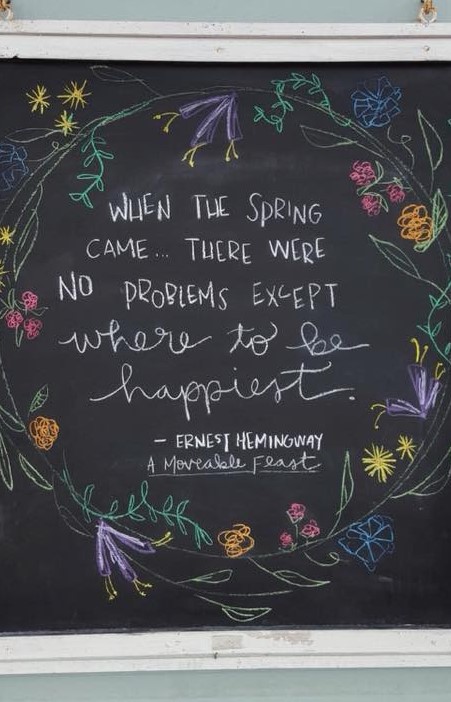 WHEN THE SPRING
CAME... THERE WERE
NO PROBLEMS EXCEPT
where to be
happiest.
— ERNEST HEMINGWAY
A Moveable Feast